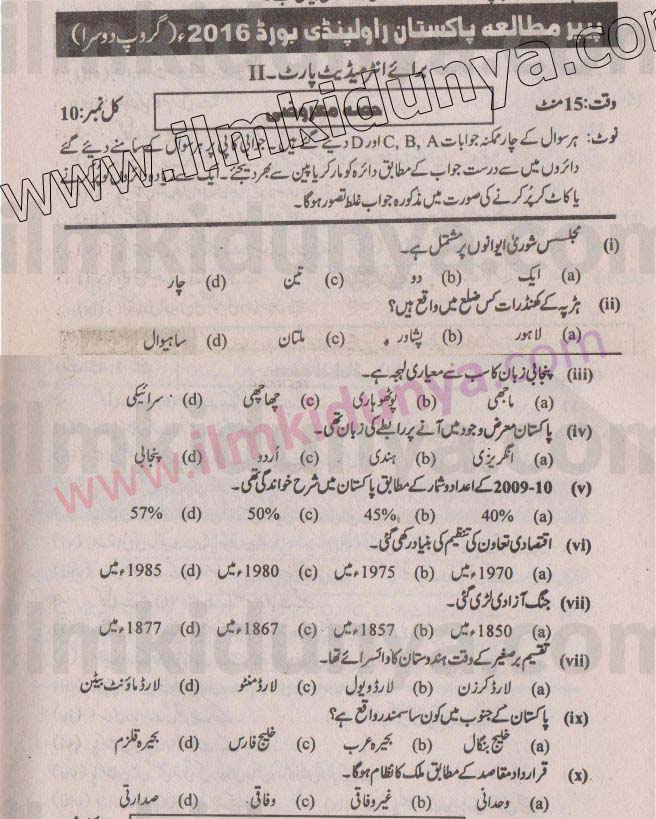 پیپر مطالعہ پاکستان راولپنڈی بورڈ 2016ء (گروپ دوسرا)
برائے انٹرمیڈیٹ پارٹ۔II
وقت: 15 منٹ حصہ معروضی کل نمبر: 10
نوٹ: ہر سوال کے چار ممکنہ جوابات A، B، C اور D دیے گئے ہیں۔ جوابی کاپی پر ہر سوال کے سامنے دیئے گئے
دائروں میں سے درست جواب کے مطابق دائرہ کو مارکر یا پین سے بھر دیجئے۔ ایک سے زیادہ دائروں کو پُر کرنے
یا کاٹ کر پُر کرنے کی صورت میں مذکورہ جواب غلط تصور ہوگا۔
(i) مجلس شوریٰ ایوانوں پر مشتمل ہے۔
(a) ایک (b) دو (c) تین (d) چار
(ii) ہڑپہ کے کھنڈرات کس ضلع میں واقع ہیں؟
(a) لاہور (b) پشاور (c) ملتان (d) ساہیوال
(iii) پنجابی زبان کا سب سے معیاری لہجہ ہے۔
(a) ماجھی (b) پوٹھوہاری (c) چھاچھی (d) سرائیکی
(iv) پاکستان معرض وجود میں آنے پر رابطے کی زبان تھی۔
(a) انگریزی (b) ہندی (c) اُردو (d) پنجابی
(v) 2009-10 کے اعداد و شمار کے مطابق پاکستان میں شرح خواندگی تھی۔
(a) 40% (b) 45% (c) 50% (d) 57%
(vi) اقتصادی تعاون کی تنظیم کی بنیاد رکھی گئی۔
(a) 1970ء میں (b) 1975ء میں (c) 1980ء میں (d) 1985ء میں
(vii) جنگ آزادی لڑی گئی۔
(a) 1850ء میں (b) 1857ء میں (c) 1867ء میں (d) 1877ء میں
(vii) تقسیم برصغیر کے وقت ہندوستان کا وائسرائے تھا۔
(a) لارڈ کرزن (b) لارڈ ویول (c) لارڈ منٹو (d) لارڈ ماؤنٹ بیٹن
(ix) پاکستان کے جنوب میں کون سا سمندر واقع ہے؟
(a) خلیج بنگال (b) بحیرہ عرب (c) خلیج فارس (d) بحیرہ قلزم
(x) قرارداد مقاصد کے مطابق ملک کا نظام ہوگا۔
(a) وحدانی (b) غیر وفاقی (c) وفاقی (d) صدارتی
www.ilmkidunya.com
www.ilmkidunya.com
ilmkidunya.com